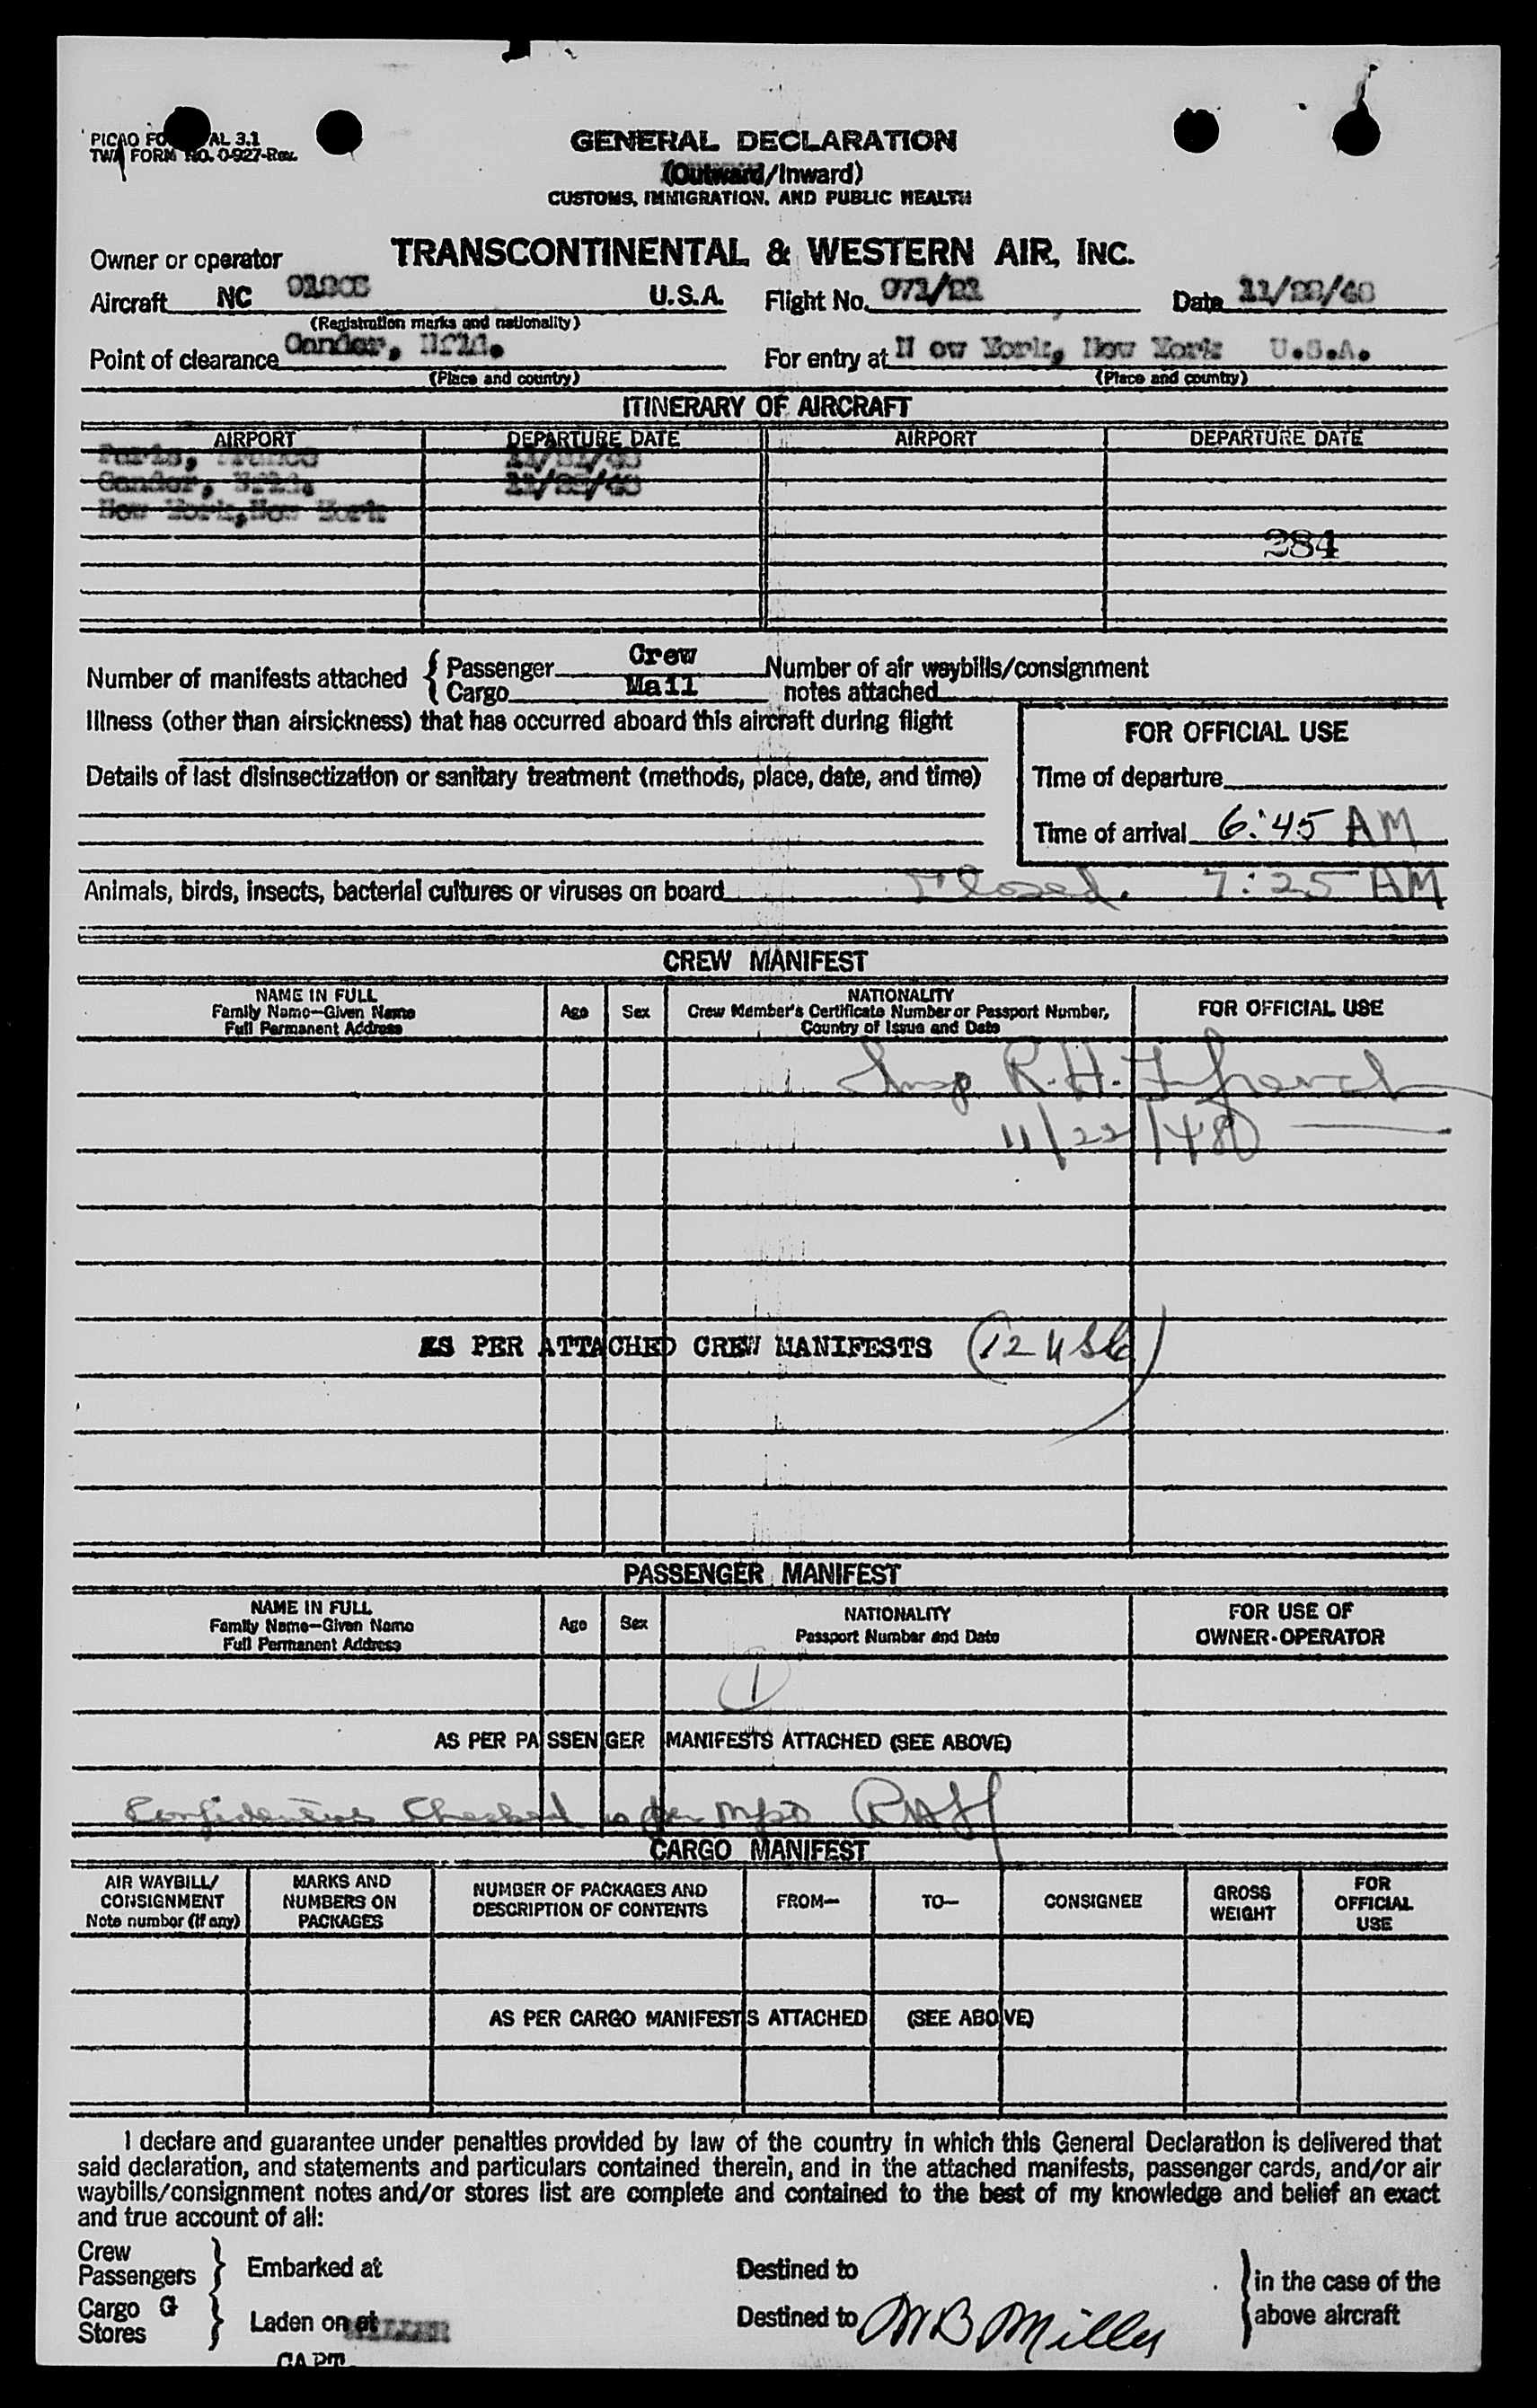 PICAO FO AL 3.1
TWA FORM NO. 0-927-Rev.
GENERAL DECLARATION
(Outward/Inward)
CUSTOMS, IMMIGRATION, AND PUBLIC HEALTH
Owner or operator TRANSCONTINENTAL & WESTERN AIR, INC.
Aircraft NC U.S.A. Flight No. 971/21 Date 11/22/48
(Registration marks and nationality)
Point of clearance Gander, Nfld. For entry at N ew York, New York U.S.A.
(Place and country) (Place and country)
ITINERARY OF AIRCRAFT
AIRPORT DEPARTURE DATE AIRPORT DEPARTURE DATE
Paris, France 11/21/48
Gander, Nfld. 11/22/48
New York, New York
284
Number of manifests attached { Passenger Crew Number of air waybills/consignment
Cargo Mail notes attached
Illness (other than airsickness) that has occurred aboard this aircraft during flight
FOR OFFICIAL USE
Details of last disinsectization or sanitary treatment (methods, place, date, and time)
Time of departure
Time of arrival 6:45 AM
Animals, birds, insects, bacterial cultures or viruses on board Closed. 7:25 AM
CREW MANIFEST
NAME IN FULL
Family Name—Given Name
Full Permanent Address
Age Sex
NATIONALITY
Crew Member's Certificate Number or Passport Number,
Country of Issue and Date
FOR OFFICIAL USE
Insp R.H.
11/22/48
AS PER ATTACHED CREW MANIFESTS (12 USC)
PASSENGER MANIFEST
NAME IN FULL
Family Name—Given Name
Full Permanent Address
Age Sex
NATIONALITY
Passport Number and Date
FOR USE OF
OWNER-OPERATOR
1
AS PER PASSENGER MANIFESTS ATTACHED (SEE ABOVE)
Checked
CARGO MANIFEST
AIR WAYBILL/
CONSIGNMENT
Note number (if any)
MARKS AND
NUMBERS ON
PACKAGES
NUMBER OF PACKAGES AND
DESCRIPTION OF CONTENTS
FROM— TO— CONSIGNEE
GROSS
WEIGHT
FOR
OFFICIAL
USE
AS PER CARGO MANIFESTS ATTACHED (SEE ABOVE)
I declare and guarantee under penalties provided by law of the country in which this General Declaration is delivered that
said declaration, and statements and particulars contained therein, and in the attached manifests, passenger cards, and/or air
waybills/consignment notes and/or stores list are complete and contained to the best of my knowledge and belief an exact
and true account of all:
Crew
Passengers } Embarked at Destined to } in the case of the
Cargo G
Stores } Laden on at MILLER Destined to M B Miller above aircraft
CAPT.